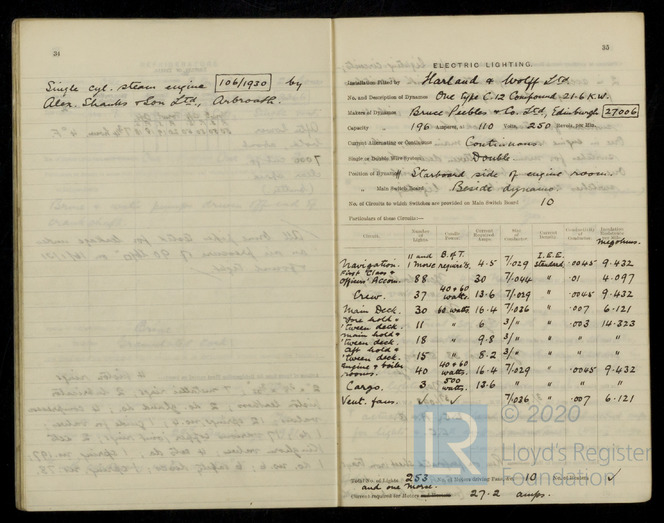 34
Single cyl. steam engine 106/1930 by
Alex. Shanks & Son Ltd., Arbroath.
35
ELECTRIC LIGHTING.
Installation Fitted by Harland & Wolff Ltd
No. and Description of Dynamos One Type C.12 Compound 21.6 K.W.
Makers of Dynamos Bruce Peebles & Co. Ltd, Edinburgh 27006
Capacity 196 Amperes, at 110 Volts, 250 Revols. per Min.
Current Alternating or Continuous Continuous.
Single or Double Wire System Double.
Position of Dynamos Starboard side of engine room.
" Main Switch Board Beside dynamo.
No. of Circuits to which Switches are provided on Main Switch Board 10
Particulars of these Circuits:—
Circuit. Number of Lights. Candle Power. Current Required Amps. Size of Conductor. Current Density. Conductivity of Conductor. Insulation Resistance
megohms.
Navigation. 11 and 1 morse B.of T. requir'ts. 4.5 7/.029 I.E.E. standard .0045 9.432
First Class & Officers' Accom. 88 30 7/.044 " .01 4.097
Crew. 37 40 & 60 watts. 13.6 7/.029 " .0045 9.432
Main Deck. 30 60 watts. 16.4 7/.036 " .007 6.121
Fore hold & 'tween deck. 11 " 6 3/" " .003 14.323
Main hold & 'tween deck. 18 " 9.8 3/" " " "
Aft hold & 'tween deck. 15 " 8.2 3/" " " "
Engine & boiler rooms. 40 40 & 60 watts. 16.4 7/.029 " .0045 9.432
Cargo. 3 500 watts. 13.6 " " " "
Vent. fans. ✓ ✓ 7/.036 " .007 6.121
Total No. of Lights 253 No. of Motors driving Fans, &c. 10 No. of Heaters ✓
and one morse.
Current required for Motors 27.2 amps.
© 2020
LR
Lloyd's Register
Foundation